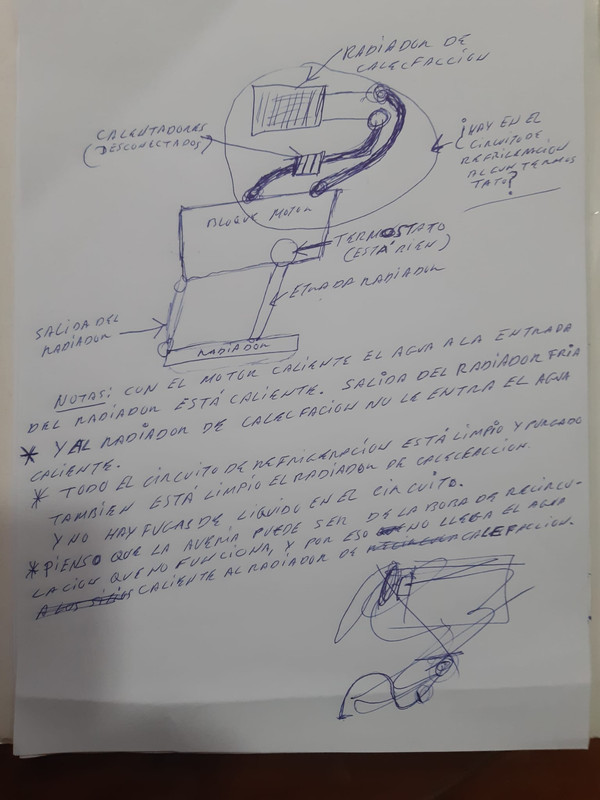 RADIADOR DE
CALECFACCIÓN
CALENTADORES
(DESCONECTADOS)
¿HAY EN EL
CIRCUITO DE
REFRIGERACIÓN
ALGUN TERMOS
TATO?
BLOQUE MOTOR
TERMOSTATO
(ESTÁ BIEN)
ETNADA RADIADOR
SALIDA DEL
RADIADOR
RADIADOR
NOTAS: CON EL MOTOR CALIENTE EL AGUA A LA ENTRADA
DEL RADIADOR ESTÁ CALIENTE. SALIDA DEL RADIADOR FRIA
* Y AL RADIADOR DE CALECFACION NO LE ENTRA EL AGUA
CALIENTE.
* TODO EL CIRCUITO DE REFRIGERACIÓN ESTÁ LIMPIO Y PURGADO
TAMBIEN ESTÁ LIMPIO EL RADIADOR DE CALECFACCIÓN.
Y NO HAY FUGAS DE LIQUIDO EN EL CIRCUITO.
* PIENSO QUE LA AVERÍA PUEDE SER DE LA BOBA DE RECIRCU-
LACION QUE NO FUNCIONA, Y POR ESO NO LLEGA EL AGUA
CALIENTE AL RADIADOR DE CALEFACCION.